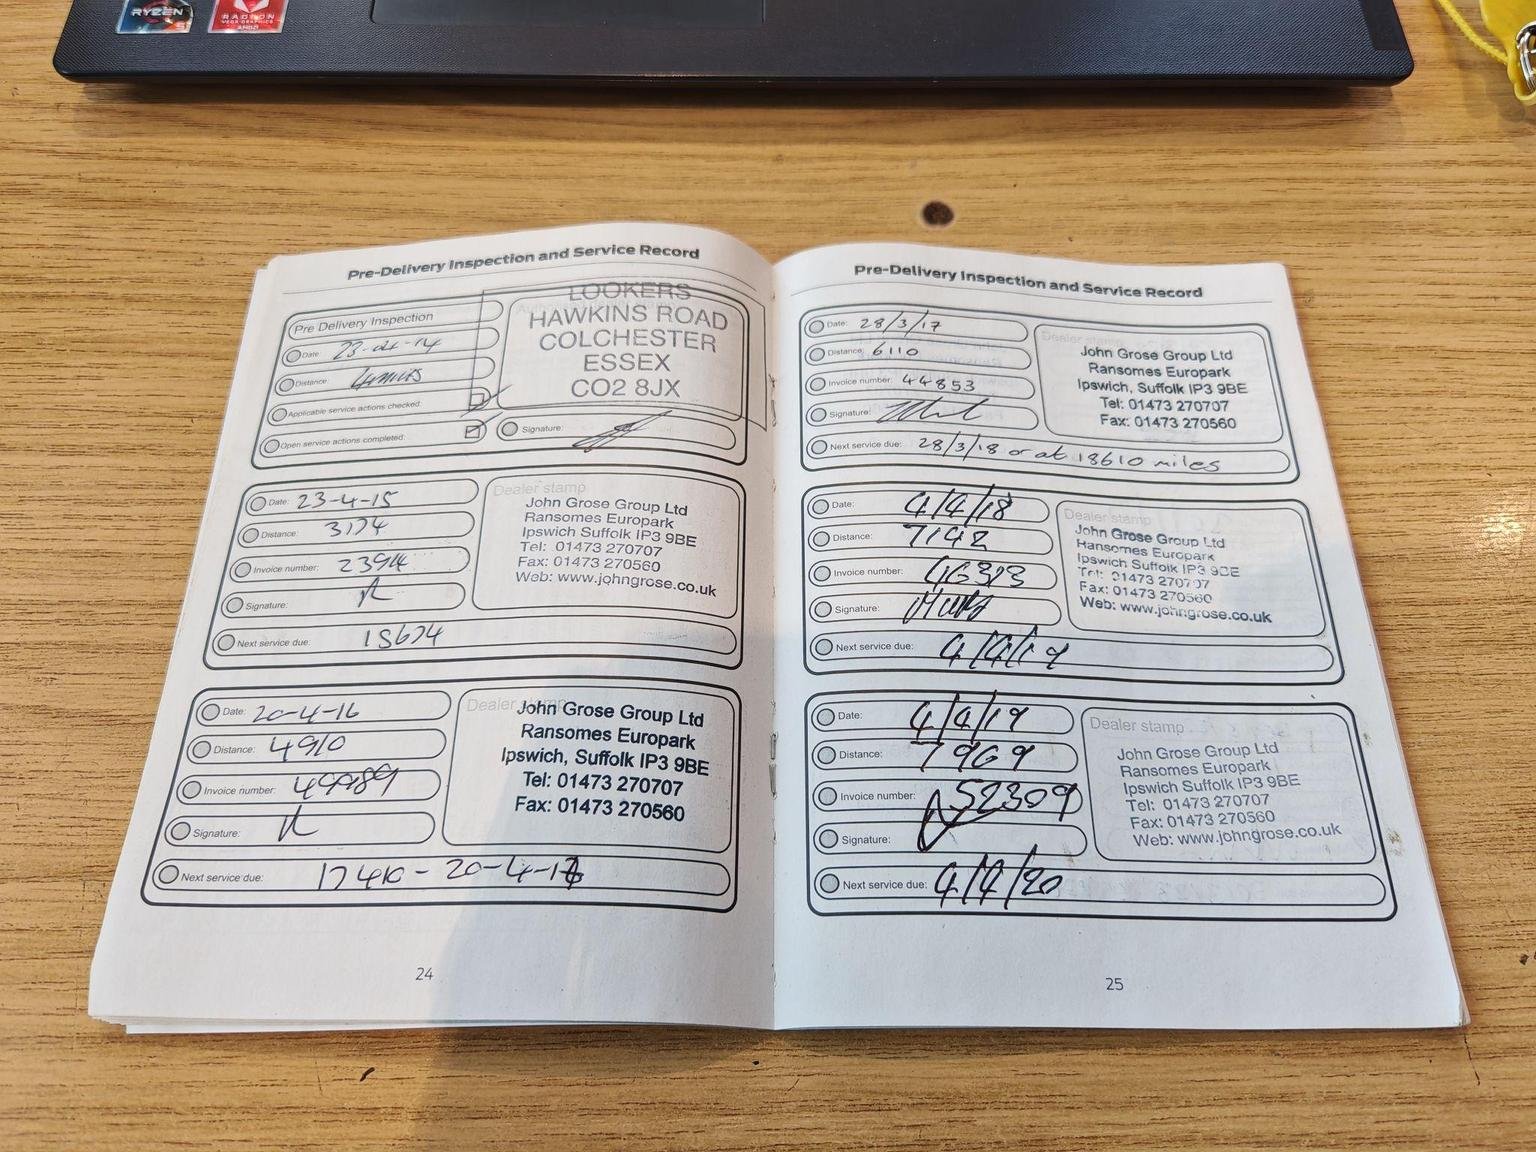 RYZEN
5
RADEON
VEGA GRAPHICS
AMD
Pre-Delivery Inspection and Service Record
Pre Delivery Inspection
Date: 23-04-14
Distance: 4 miles
Applicable service actions checked:
Open service actions completed:
LOOKERS
HAWKINS ROAD
COLCHESTER
ESSEX
CO2 8JX
Signature:
Date: 23-4-15
Distance: 3174
Invoice number:
Signature:
Next service due: 15674
Dealer stamp
John Grose Group Ltd
Ransomes Europark
Ipswich Suffolk IP3 9BE
Tel: 01473 270707
Fax: 01473 270560
Web: www.johngrose.co.uk
Date: 20-4-16
Distance: 4910
Invoice number: 49989
Signature:
Next service due: 17410 - 20-4-17
Dealer stamp
John Grose Group Ltd
Ransomes Europark
Ipswich, Suffolk IP3 9BE
Tel: 01473 270707
Fax: 01473 270560
24
Pre-Delivery Inspection and Service Record
Date: 28/3/17
Distance: 6110
Invoice number: 44853
Signature:
Next service due: 28/3/18 or at 18610 miles
Dealer stamp
John Grose Group Ltd
Ransomes Europark
Ipswich, Suffolk IP3 9BE
Tel: 01473 270707
Fax: 01473 270560
Date: 4/4/18
Distance: 7142
Invoice number: 46323
Signature:
Next service due: 4/4/19
Dealer stamp
John Grose Group Ltd
Ransomes Europark
Ipswich Suffolk IP3 9BE
Tel: 01473 270707
Fax: 01473 270560
Web: www.johngrose.co.uk
Date: 4/4/19
Distance: 7969
Invoice number: 52309
Signature:
Next service due: 4/4/20
Dealer stamp
John Grose Group Ltd
Ransomes Europark
Ipswich Suffolk IP3 9BE
Tel: 01473 270707
Fax: 01473 270560
Web: www.johngrose.co.uk
25